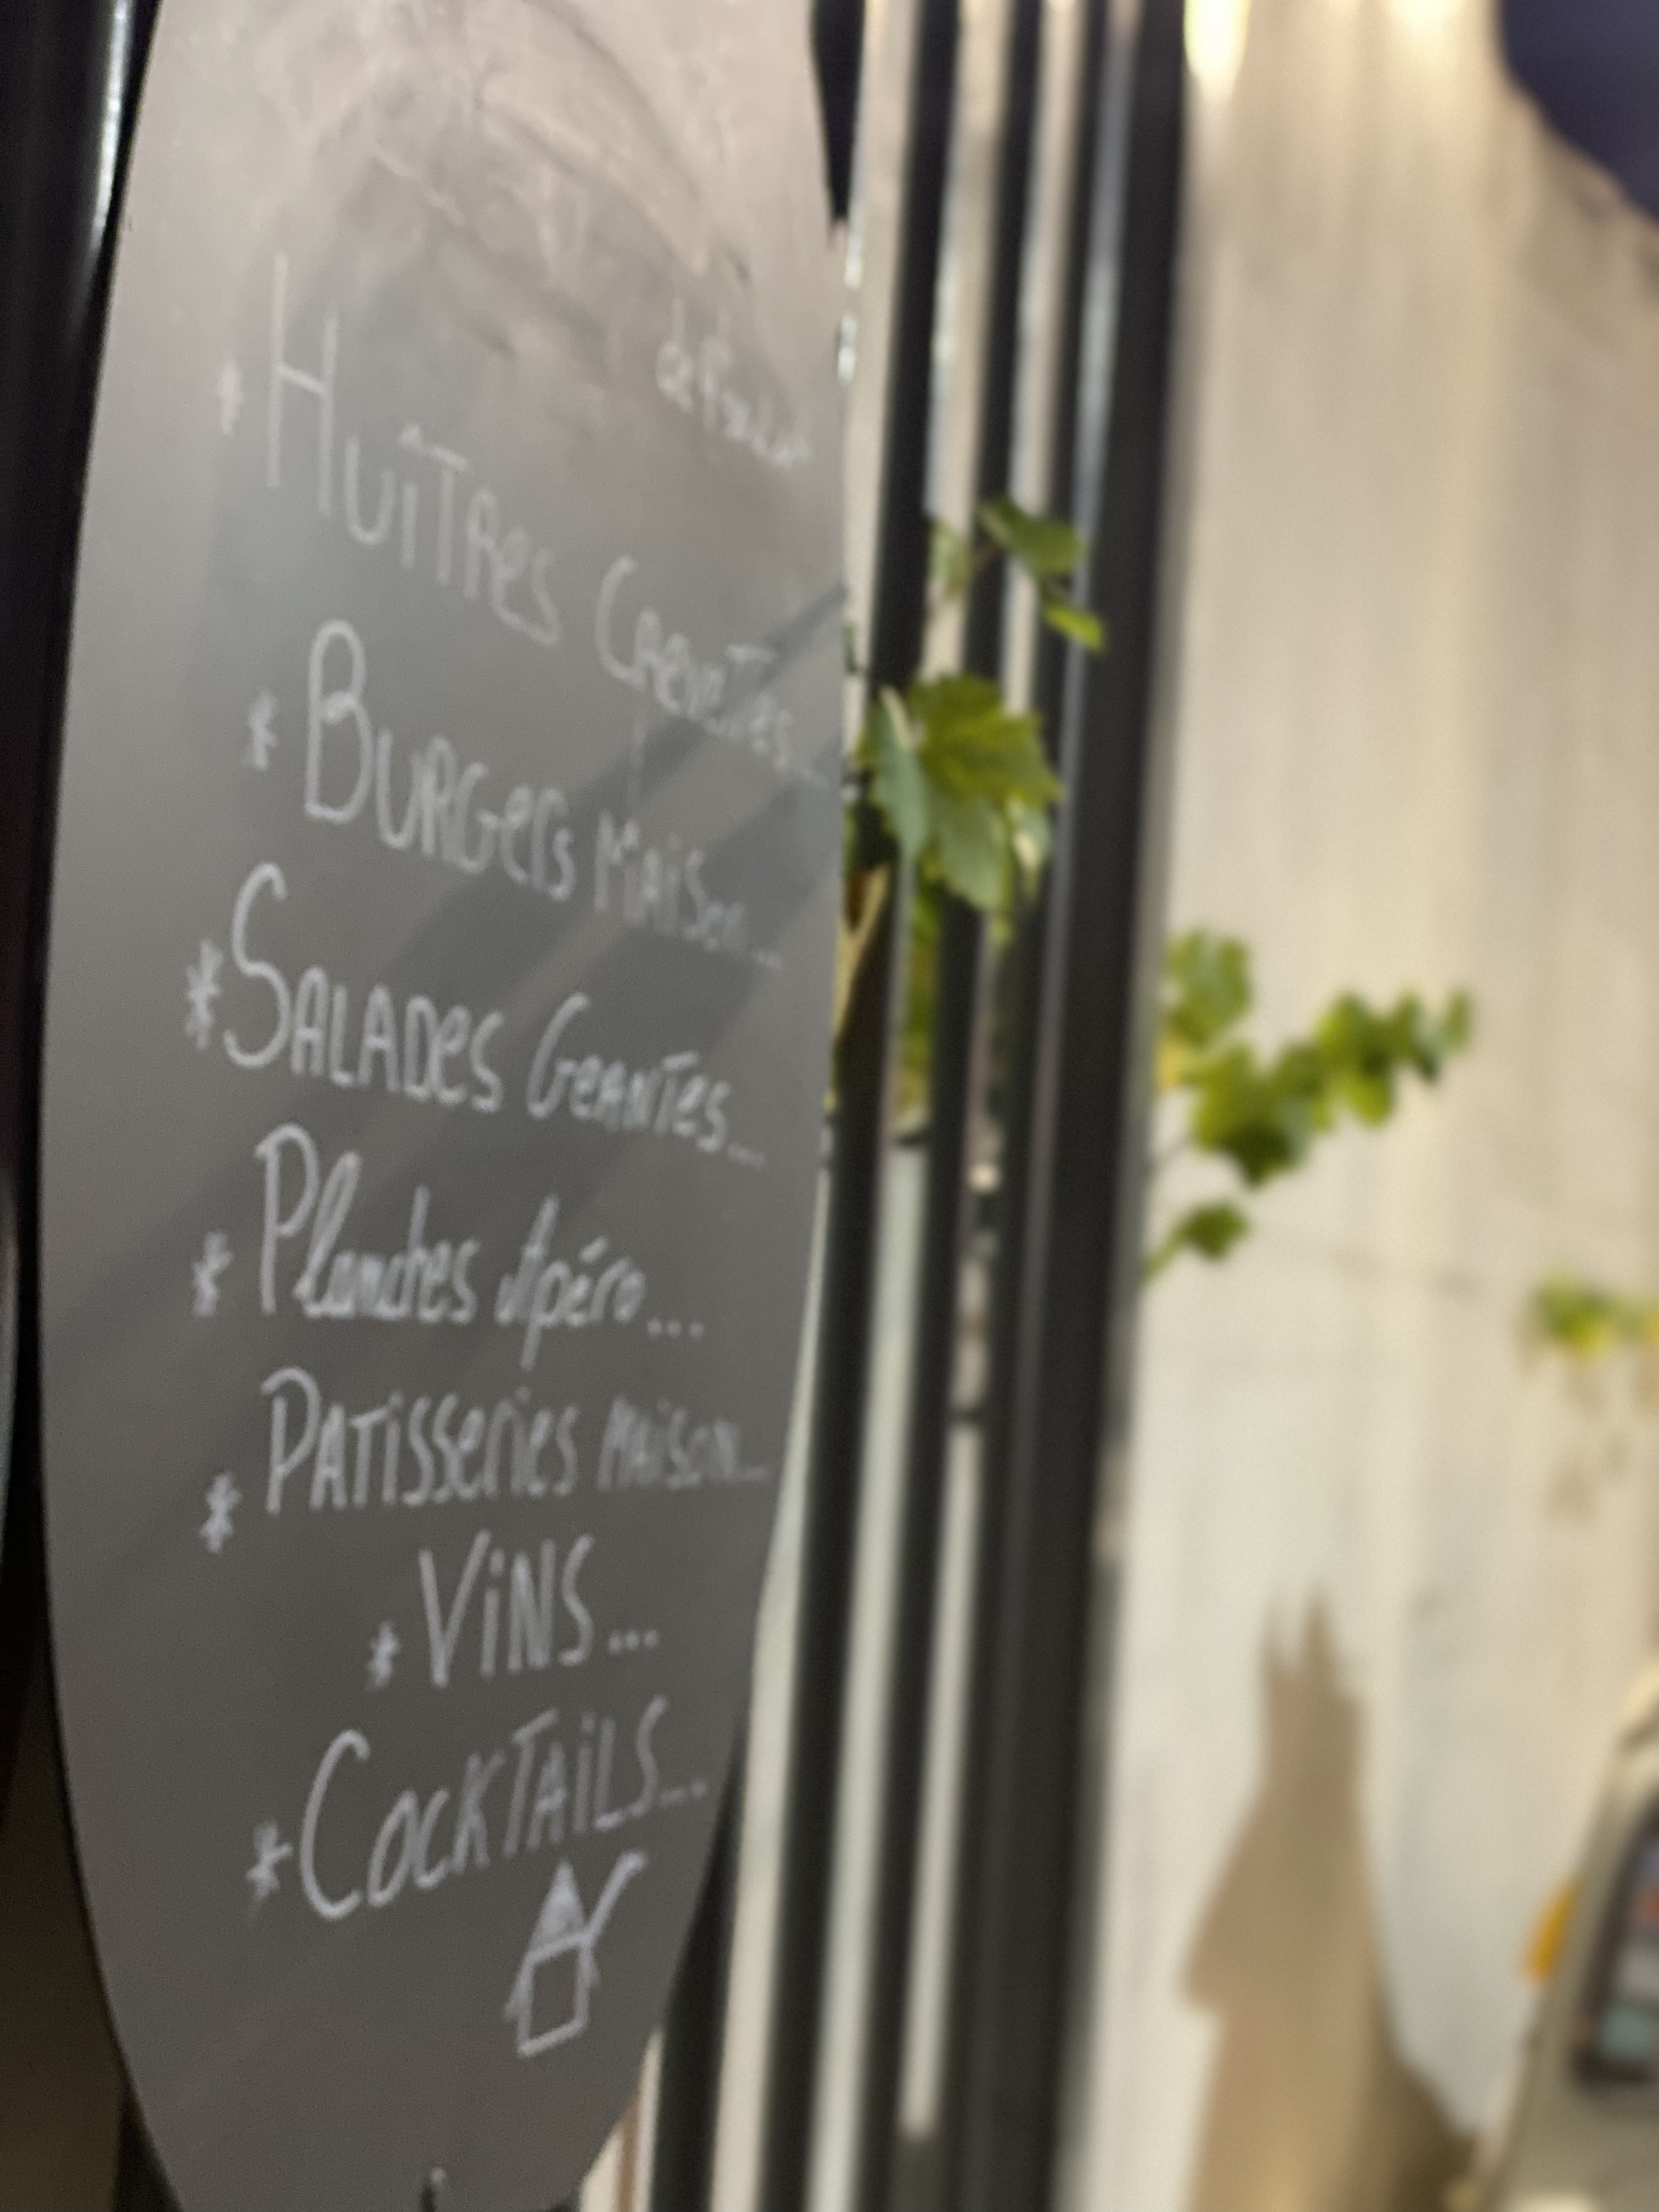 * HUÎTRES CREVETTES...
* BURGERS MAISON...
* SALADES GEANTES...
* Planches Apéro...
* PATISSERIES MAISON...
* VINS...
* COCKTAILS...